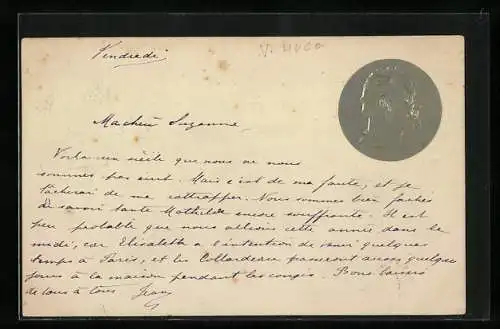 Vendredi
V. HUGO
Ma chère Suzanne
Voilà un siècle que nous ne nous
sommes pas écrit. Mais c'est de ma faute, et je
tâcherai de me rattrapper. Nous sommes bien fachés
de savoir tante Mathilde encore souffrante. Il est
peu probable que nous allions cette année dans le
midi, car Elisabeth a l'intention de venir quelque
temps à Paris, et les Collardeau passeront aussi quelques
jours à la maison pendant les congés. Bons baisers
de tous à tous Jean